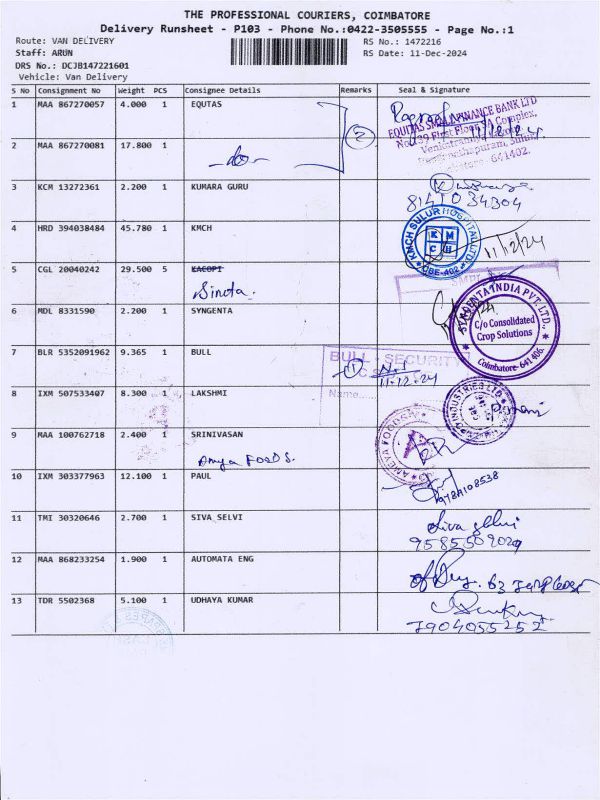 THE PROFESSIONAL COURIERS, COIMBATORE
Delivery Runsheet - P103 - Phone No.:0422-3505555 - Page No.:1
Route: VAN DELIVERY RS No.: 1472216
Staff: ARUN RS Date: 11-Dec-2024
DRS No.: DCJB147221601
Vehicle: Van Delivery
S No Consignment No Weight PCS Consignee Details Remarks Seal & Signature
1 MAA 867270057 4.000 1 EQUTAS
EQUITAS SMALL FINANCE BANK LTD
2 MAA 867270081 17.800 1 -do- 2
641402.
3 KCM 13272361 2.200 1 KUMARA GURU
8141034304
4 HRD 394038484 45.780 1 KMCH
KMCH SULUR HOSPITAL LTD
KMCH
CBE-402
11/12/24
5 CGL 20040242 29.500 5 KACOPI
Sinota.
6 MDL 8331590 2.200 1 SYNGENTA
INDIA PVT. LTD.,
C/o Consolidated
Crop Solutions
Coimbatore- 641 406.
7 BLR 5352091962 9.365 1 BULL
BULL SECURITY
1
11-12-24
Name....
8 IXM 507533407 8.300 1 LAKSHMI
INDUSTRIES LTD
9 MAA 100762718 2.400 1 SRINIVASAN
Amya FOODS.
10 IXM 303377963 12.100 1 PAUL
9789108538
11 TMI 30320646 2.700 1 SIVA SELVI
Siva selvi
9585509029
12 MAA 868233254 1.900 1 AUTOMATA ENG
13 TDR 5502368 5.100 1 UDHAYA KUMAR
7904055252